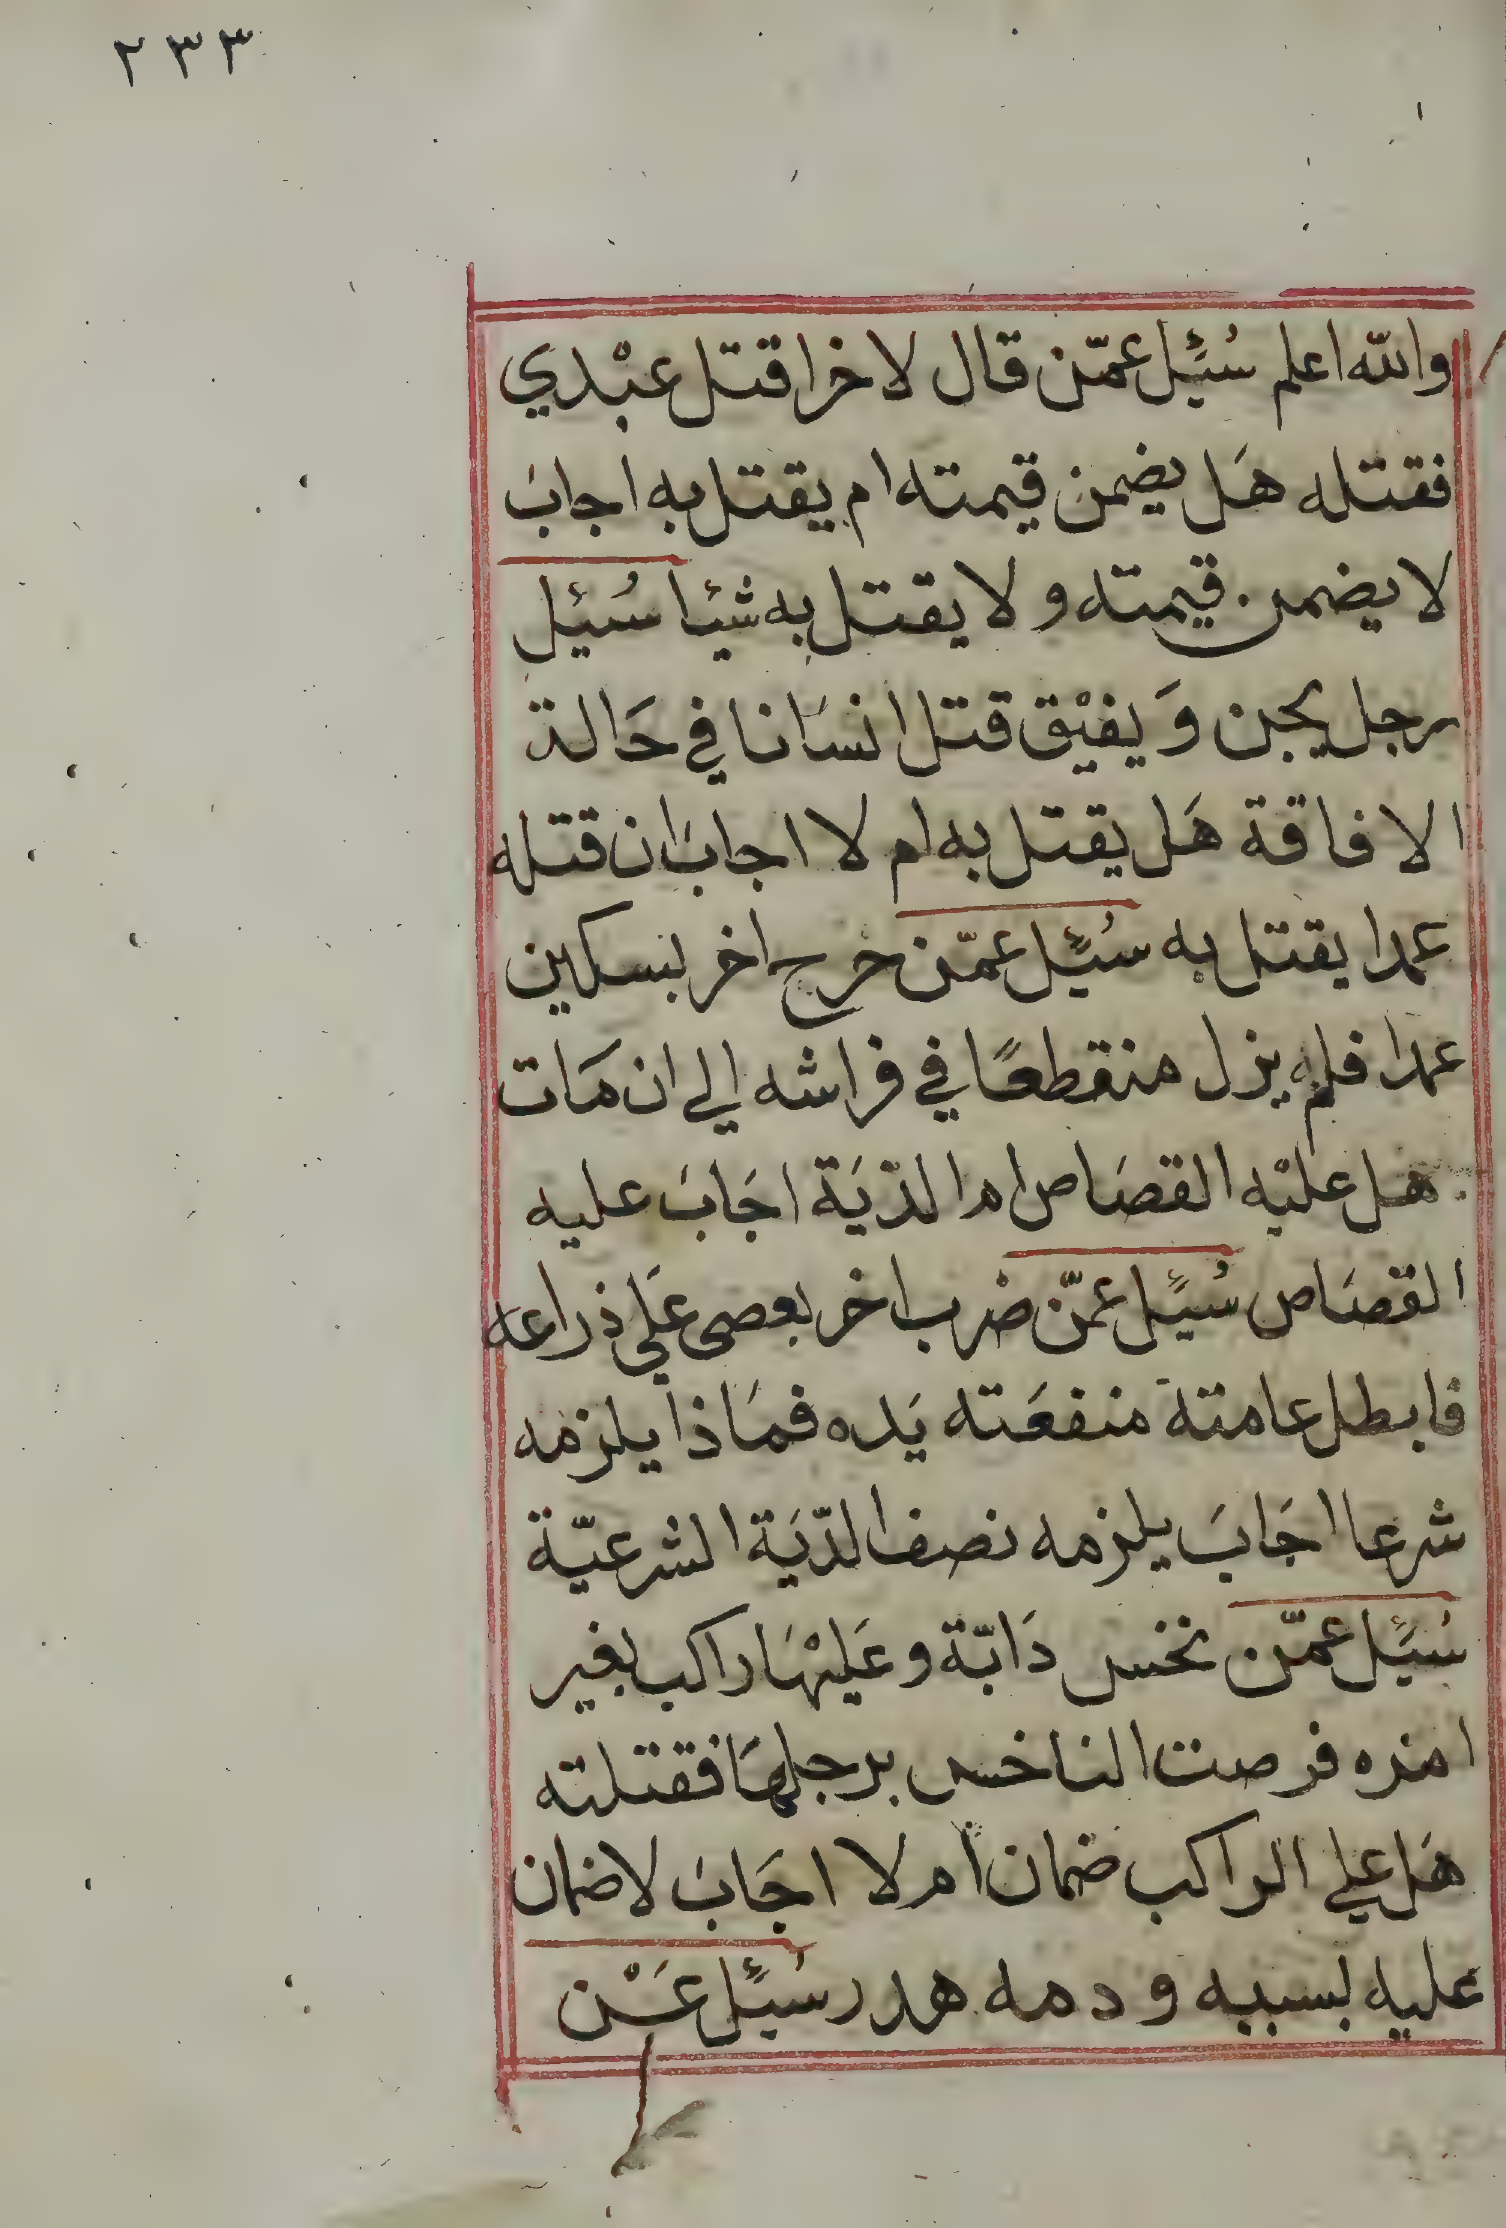 ٢٣٣
والله اعلم سُئِل عمّن قال لاخر اقتل عبْدي
فقتله هَل يضمن قيمته ام يقتل به اجابَ
لا يضمن قيمته و لا يقتل به شيئا سُئِل
رجل يجن وَ يفيْق قتل انسَانا في حَالة
الافاقة هَل يقتل به ام لا اجابَ ان قتله
عمدا يقتل به سُئِل عمّن جرح اخر بسكين
عمدا فلم يزل منقطعًا في فراشه الي ان مَات
هل عليْه القصَاص ام الدّيَة اجَابَ عليه
القصَاص سُئِل عمّن ضرب اخر بعصى عَلي ذراعه
فابطل عامته منفعَته يَده فمَاذا يلزمه
شرعا اجَابَ يلزمه نصف الدّيَة الشرعيّة
سُئِل عمّن نخس دَابّة و عَليْهَا راكب بغير
امره فرصت الناخس برجلهَا فقتلته
هَل علي الراكب ضمان أم لا اجَابَ لا ضمان
عليه بسببه و دمه هدر سُئِل عَنْ